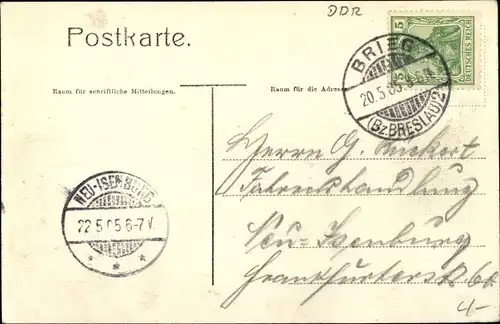 DDR
Postkarte.
5
DEUTSCHES REICH
BRIEG
20.5.05
(Bz BRESLAU) 2
Raum für schriftliche Mitteilungen.
Raum für die Adresse
NEU-ISENBURG
22.5.05.6-7V.
Herrn G. Ruckert
Fahrradhandlung
Neu-Isenburg
Frankfurterstr. 60
4-